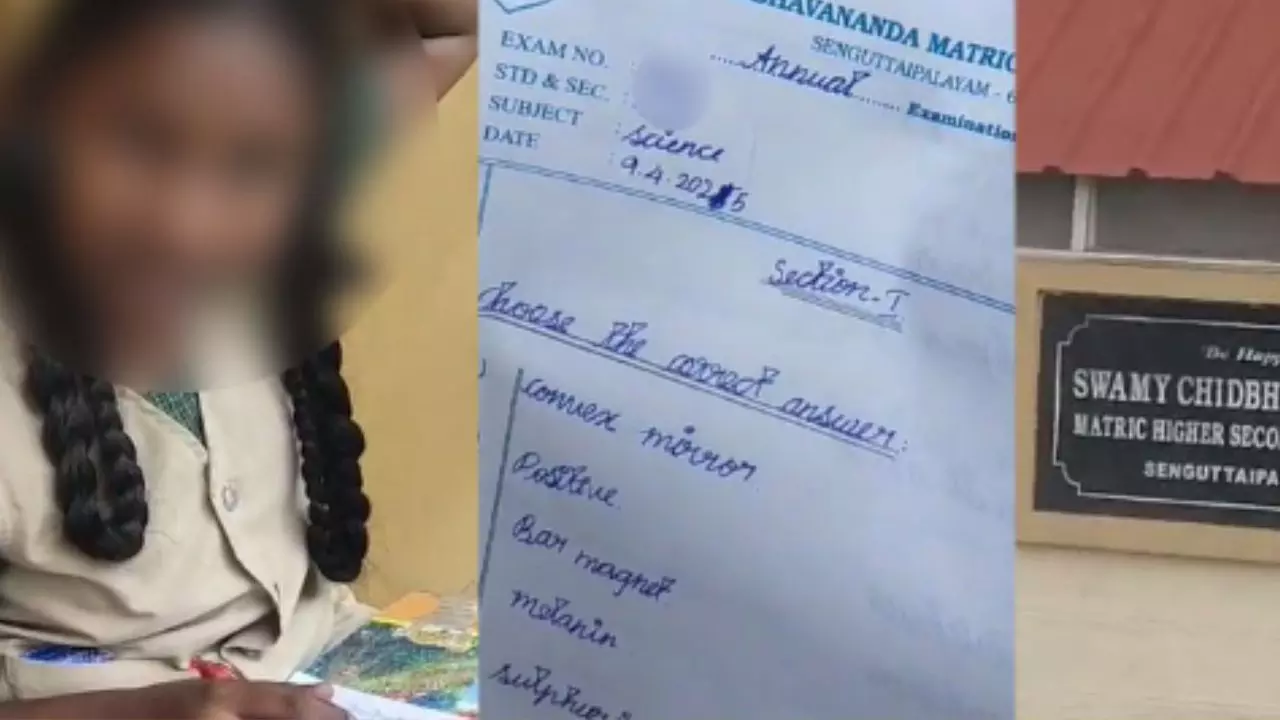 BHAVANANDA MATRIC
SENGUTTAIPALAYAM - 6
Annual Examination
EXAM NO. :
STD & SEC. :
SUBJECT : Science
DATE : 9.4.2025
Section-I
Choose the correct answer:
Convex mirror
Positive
Bar magnet
melanin
sulphuri
"Be Happy
SWAMY CHIDBH
MATRIC HIGHER SECO
SENGUTTAIPA